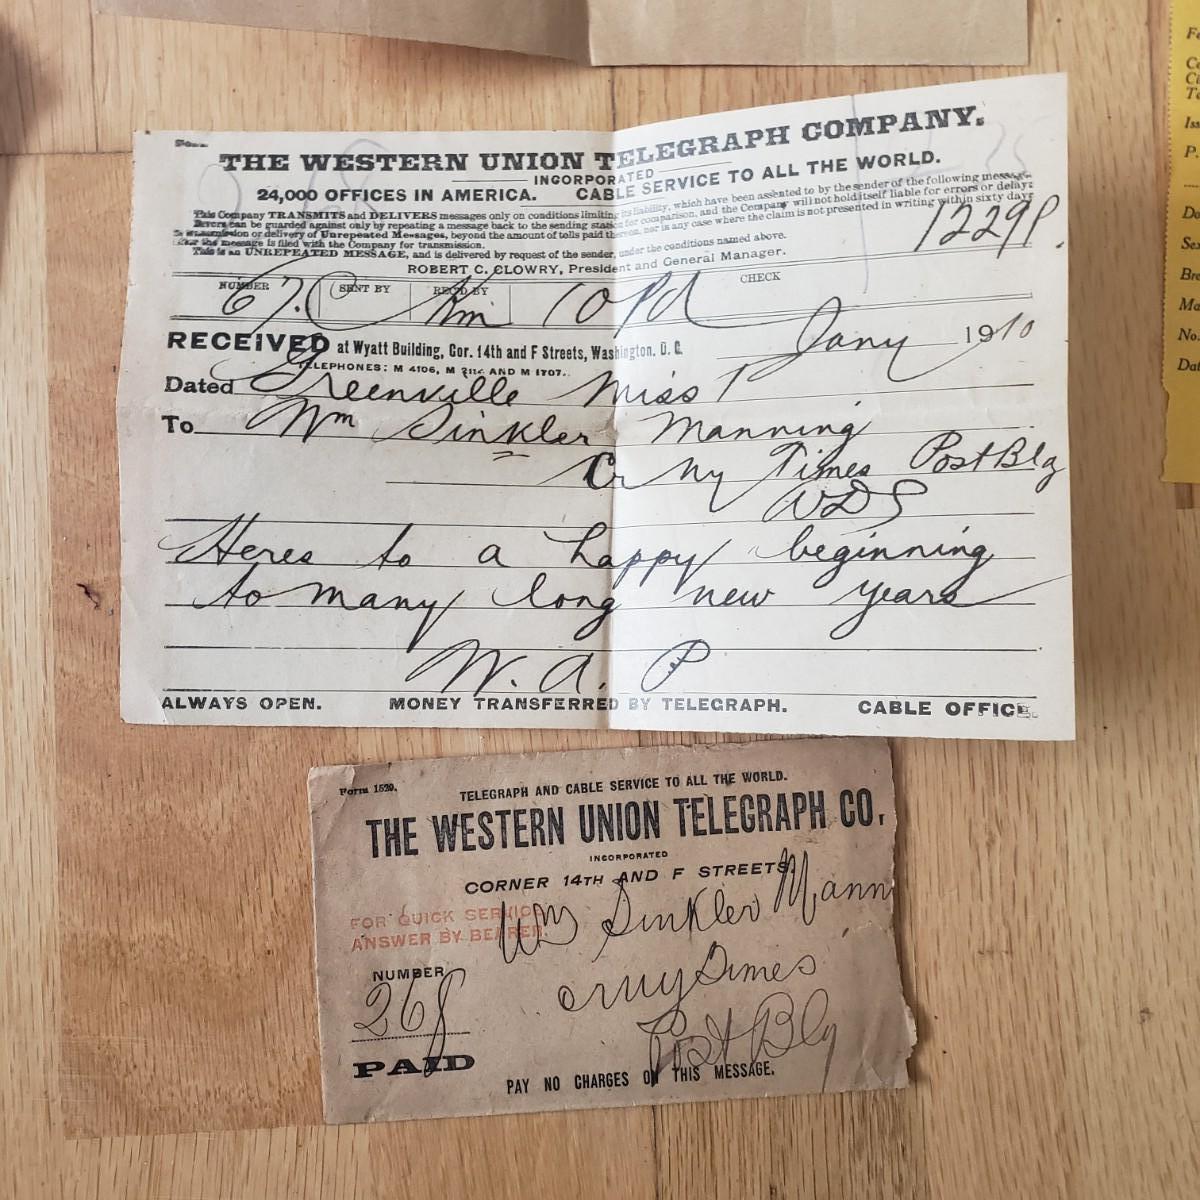 THE WESTERN UNION TELEGRAPH COMPANY.
INCORPORATED
24,000 OFFICES IN AMERICA. CABLE SERVICE TO ALL THE WORLD.
This Company TRANSMITS and DELIVERS messages only on conditions limiting its liability, which have been assented to by the sender of the following message.
Errors can be guarded against only by repeating a message back to the sending station for comparison, and the Company will not hold itself liable for errors or delays
in transmission or delivery of Unrepeated Messages, beyond the amount of tolls paid thereon, nor in any case where the claim is not presented in writing within sixty days
after the message is filed with the Company for transmission.
This is an UNREPEATED MESSAGE, and is delivered by request of the sender, under the conditions named above.
ROBERT C. CLOWRY, President and General Manager.
1229P.
NUMBER SENT BY REC'D BY CHECK
67. C Km 10 Pd
RECEIVED at Wyatt Building, Cor. 14th and F Streets, Washington, D. C. Jany 1910
TELEPHONES: M 4106, M AND M 1707.
Dated Greenville Miss 1
To Wm Sinkler Manning
Cr Ny Times Post Blg
WDS
Heres to a happy beginning
to many long new years
W. A. P
ALWAYS OPEN. MONEY TRANSFERRED BY TELEGRAPH. CABLE OFFICE.
Form 1529.
TELEGRAPH AND CABLE SERVICE TO ALL THE WORLD.
THE WESTERN UNION TELEGRAPH CO,
INCORPORATED
CORNER 14TH AND F STREETS.
FOR QUICK SERVICE
ANSWER BY BEARER.
Wm Sinkler Mann
NUMBER
cr ny Times
268
Post Blg
PAID
PAY NO CHARGES ON THIS MESSAGE.